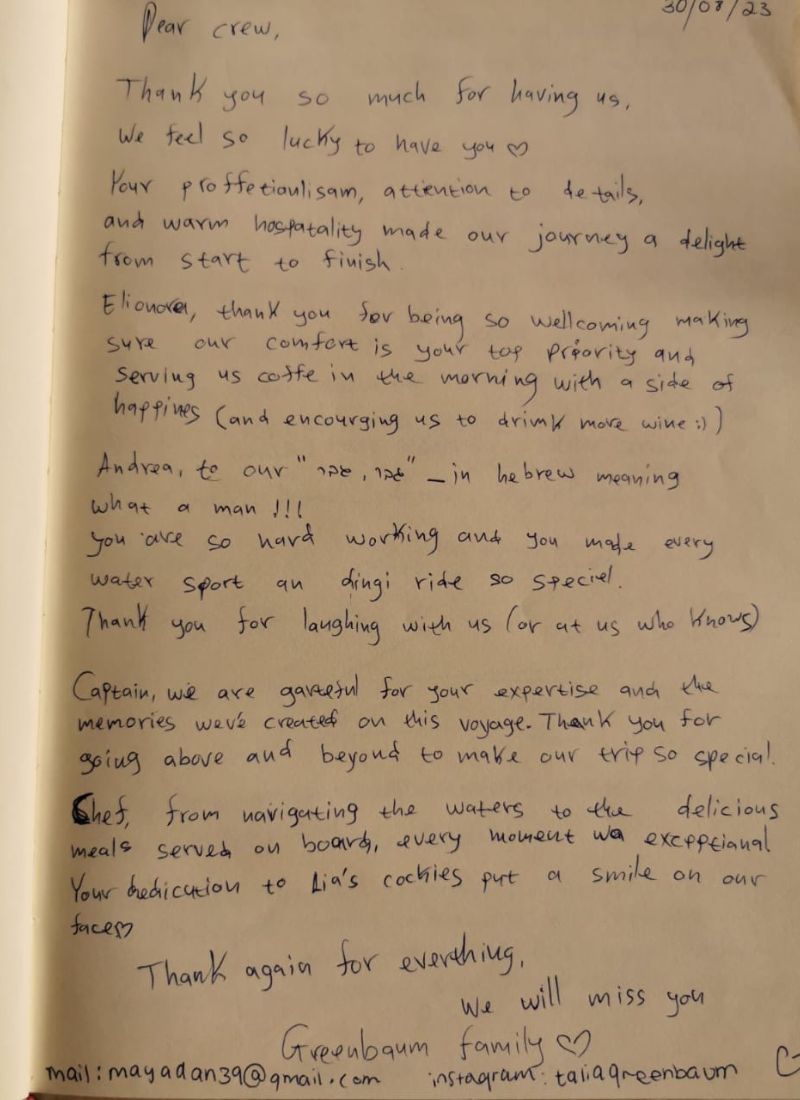 30/07/23
Dear crew,
Thank you so much for having us,
We feel so lucky to have you ♡
Your proffetionlisam, attention to details,
and warm hospatality made our journey a delight
from start to finish.
Elionora, thank you for being so wellcoming making
sure our comfort is your top priority and
serving us coffe in the morning with a side of
happines (and encourging us to drink more wine :))
Andrea, to our "גבר, גבר" - in hebrew meaning
what a man !!!
you are so hard working and you made every
water sport an dingi ride so speciel.
Thank you for laughing with us (or at us who knows)
Captain, we are gareteful for your expertise and the
memories weve created on this voyage. Thank you for
going above and beyond to make our trip so special.
Chef, from navigating the waters to the delicious
meals served on board, every moment wa exceptional
Your dedication to Lia's cockies put a smile on our
face♡
Thank again for everthing,
We will miss you
Greenbaum family ♡
mail: mayadan39@gmail.com instagram: taliagreenbaum